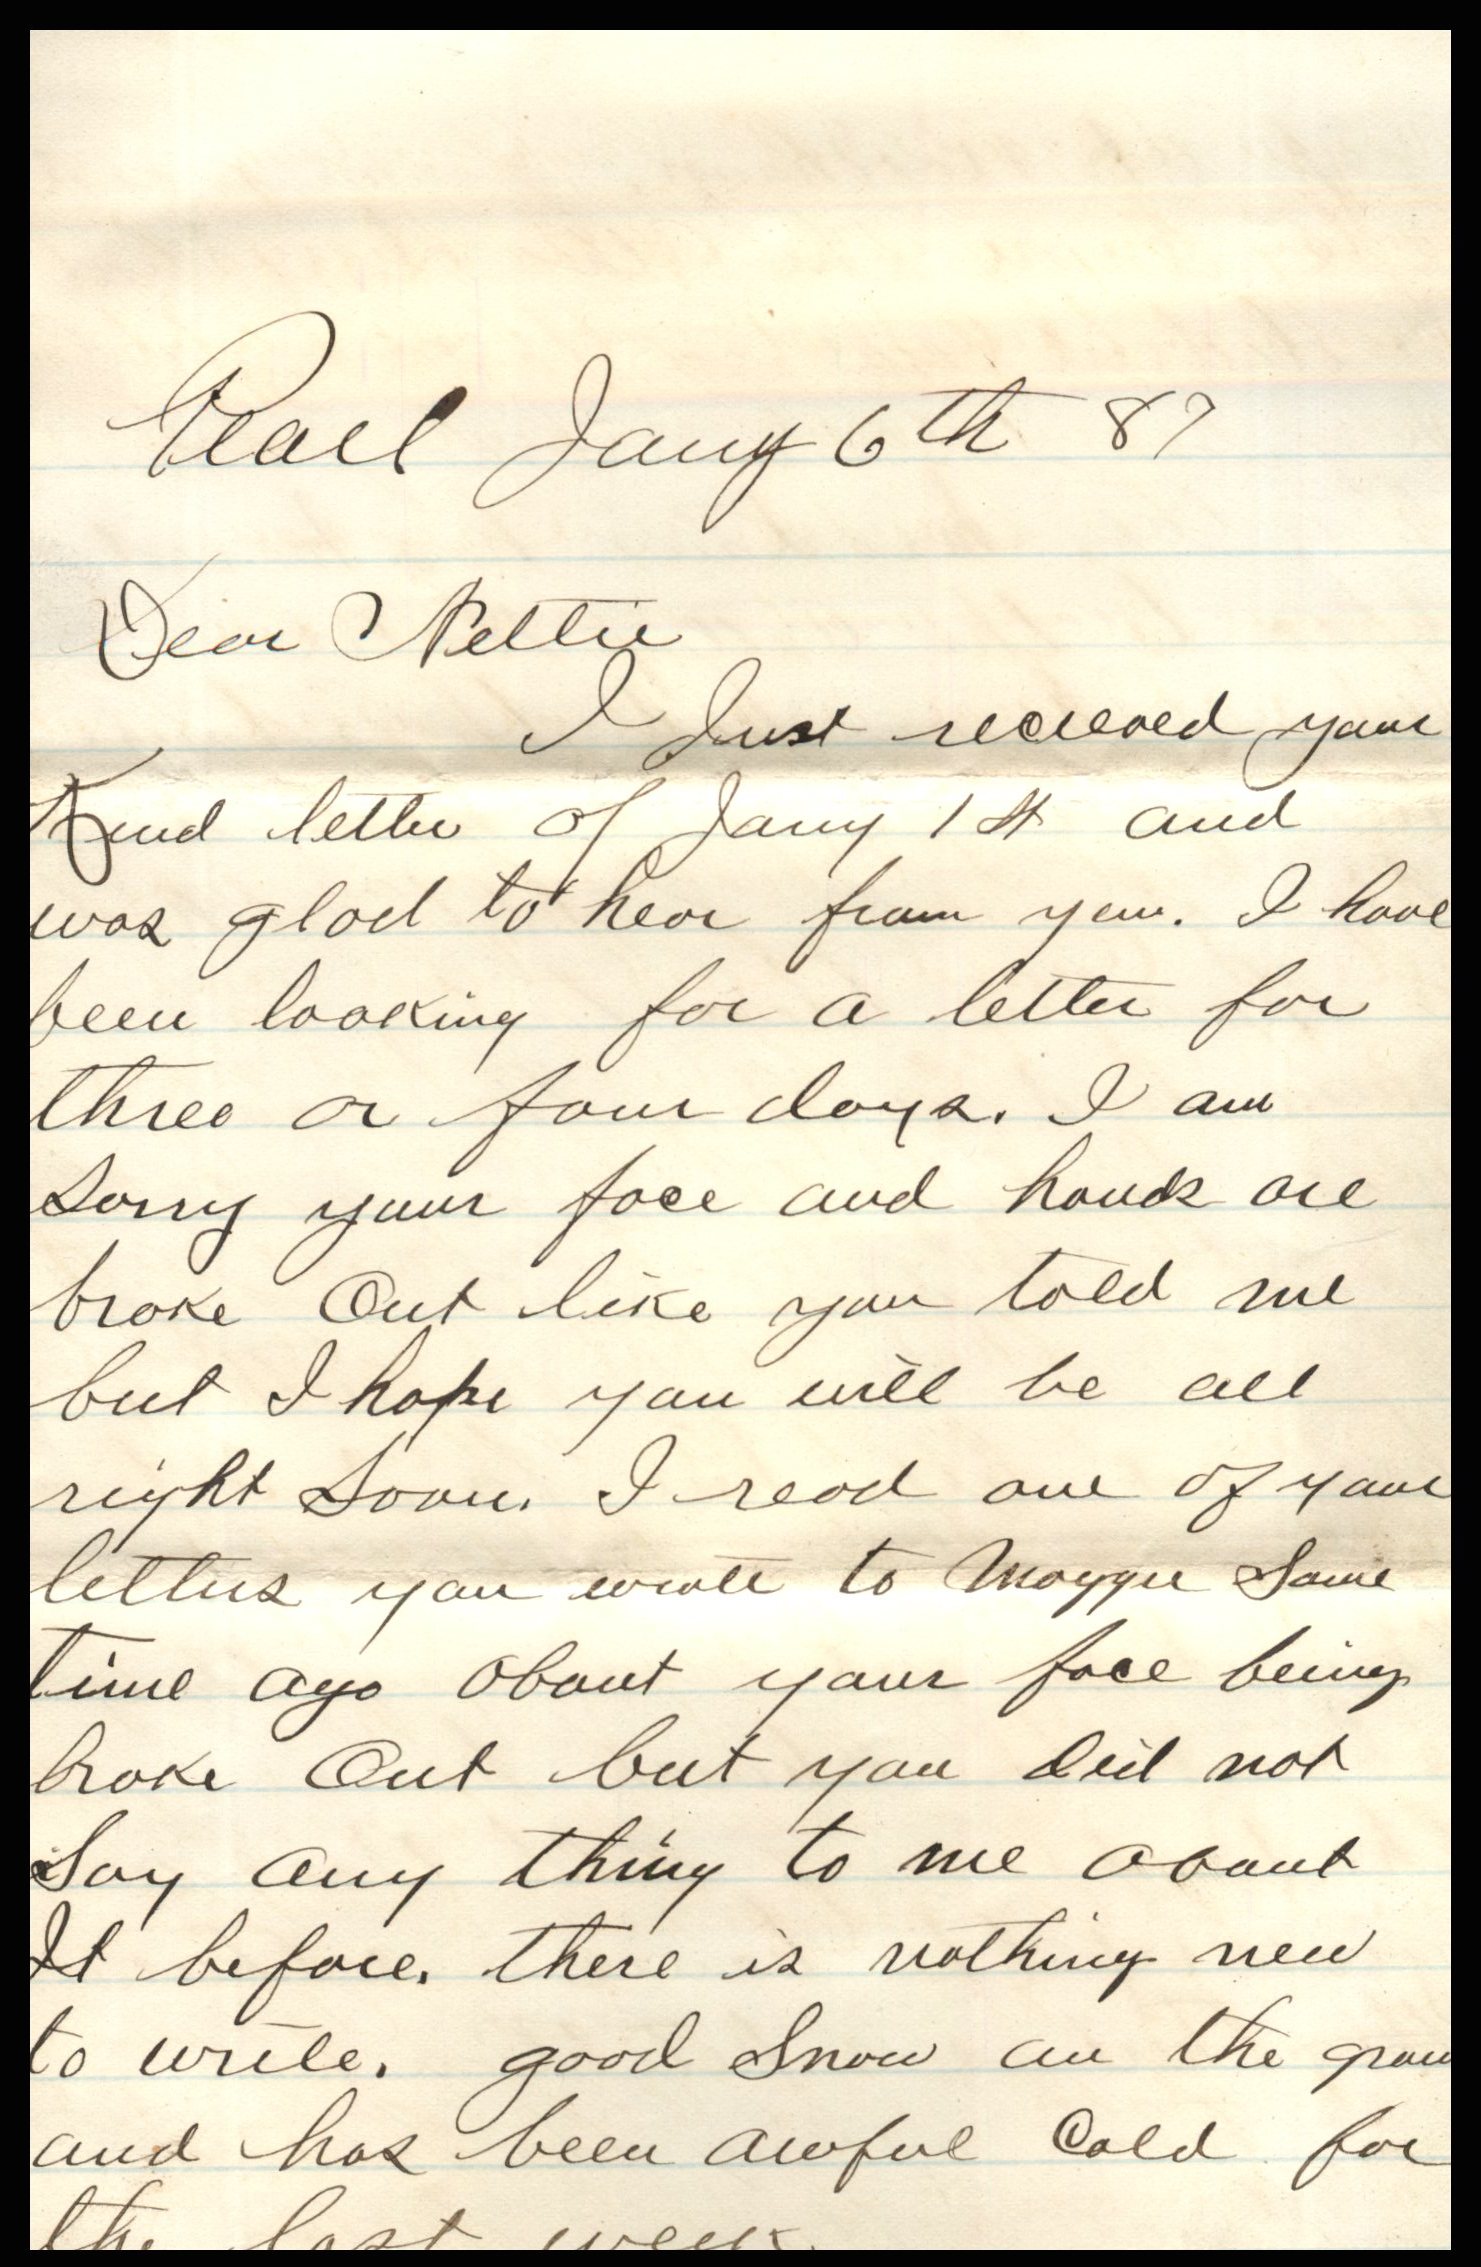 Pearl Jany 6th 87
Dear Nettie
I Just recieved your
Kind letter of Jany 1st and
was glad to hear from you. I have
been looking for a letter for
three or four days. I am
Sorry your face and hands are
broke Out like you told me
but I hope you will be all
right Soon. I read one of your
letters you wrote to Maggie Some
time ago about your face being
broke Out but you did not
Say any thing to me about
It before. there is nothing new
to write. good Snow on the groun
and has been awful Cold for
the last week.